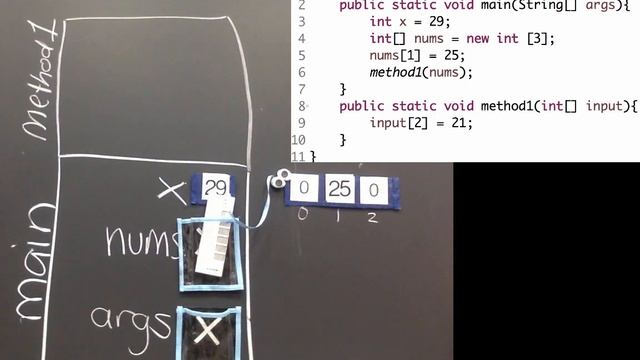 2    public static void main(String[] args){
3        int x = 29;
4        int[] nums = new int [3];
5        nums[1] = 25;
6        method1(nums);
7    }
8    public static void method1(int[] input){
9        input[2] = 21;
10    }
11 }
method1
main
x 29
0 25 0
0 1 2
nums
args X